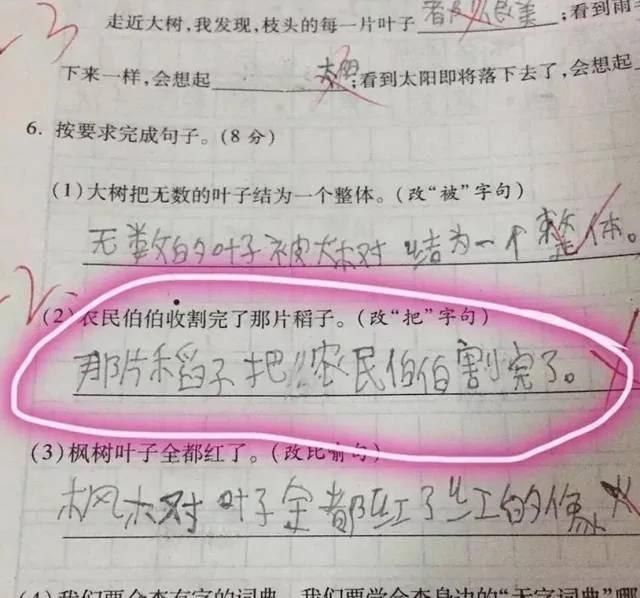 走近大树,我发现,枝头的每一片叶子 ;看到雨
下来一样,会想起 太阳 ;看到太阳即将落下去了,会想起
6. 按要求完成句子。(8分)
(1)大树把无数的叶子结为一个整体。(改“被”字句)
无数的叶子被大树结为一个整体。
(2)农民伯伯收割完了那片稻子。(改“把”字句)
那片稻子把农民伯伯割完了。
(3)枫树叶子全都红了。(改比喻句)
枫树叶子全都红了红的像火
(4)我们要会查有字的词典,我们要学会查身边的“无字词典”